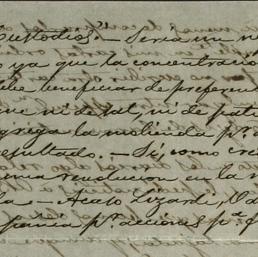 Custodios. — Seria un ne
o ya que la concentració
ebe beneficiar de preferen
ne ni de tal, ni de pati
grega la molienda pr. a
esultado. — Si, como cre
una revolucion en la m
la — Acaso Lizardi, O d
pania pr. acciones, pa. f